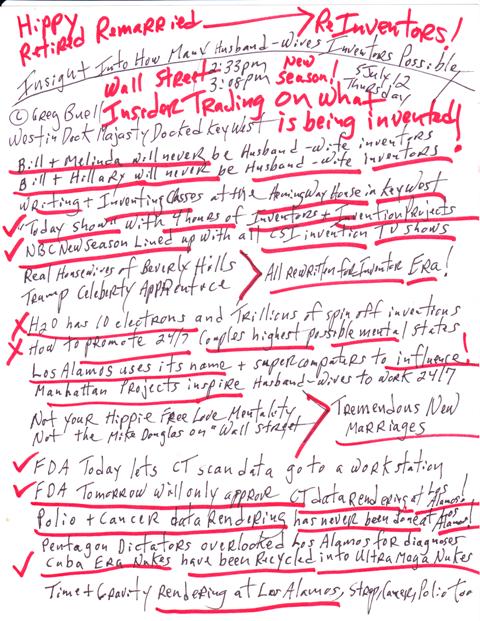 Hippy
Retired Remarried → ReInventors!
Insight Into How Many Husband-Wives Inventors Possible
2:33pm
Wall Street 3:08pm New Season! 5 July 12 Thursday
© Greg Buell Insider Trading on what
Westin Dock Majasty Docked Key West is being invented!
Bill + Melinda will never be Husband-Wife inventors
Bill + Hillary will never be Husband-Wife inventors!
writing + Inventing Classes at the Hemingway House in Key West
"Today show" with 4 hours of Inventors + Invention Projects
NBC New Season Lined up with all CSI invention TV shows
Real Housewives of Beverly Hills
Trump Celeberty Apprentice > All rewritten for Inventor Era!
H2O has 10 electrons and Trillions of spin off inventions
How to promote 24/7 Couples highest possible mental states
Los Alamos uses its name + supercomputers to influence!
Manhattan Projects inspire Husband-Wives to work 24/7
Not your Hippie Free Love Mentality
Not the Mike Douglas on "Wall Street" > Tremendous New Marriages
FDA Today lets CT scan data go to a workstation
FDA Tomorrow will only approve CT data Rendering at Los Alamos!
Polio + Cancer data Rendering has never been done at Los Alamos!
Pentagon Dictators overlooked Los Alamos for diagnoses
Cuba Era Nukes have been Recycled into Ultra Mega Nukes
Time + Gravity Rendering at Los Alamos, Strop, Cancer, Polio too